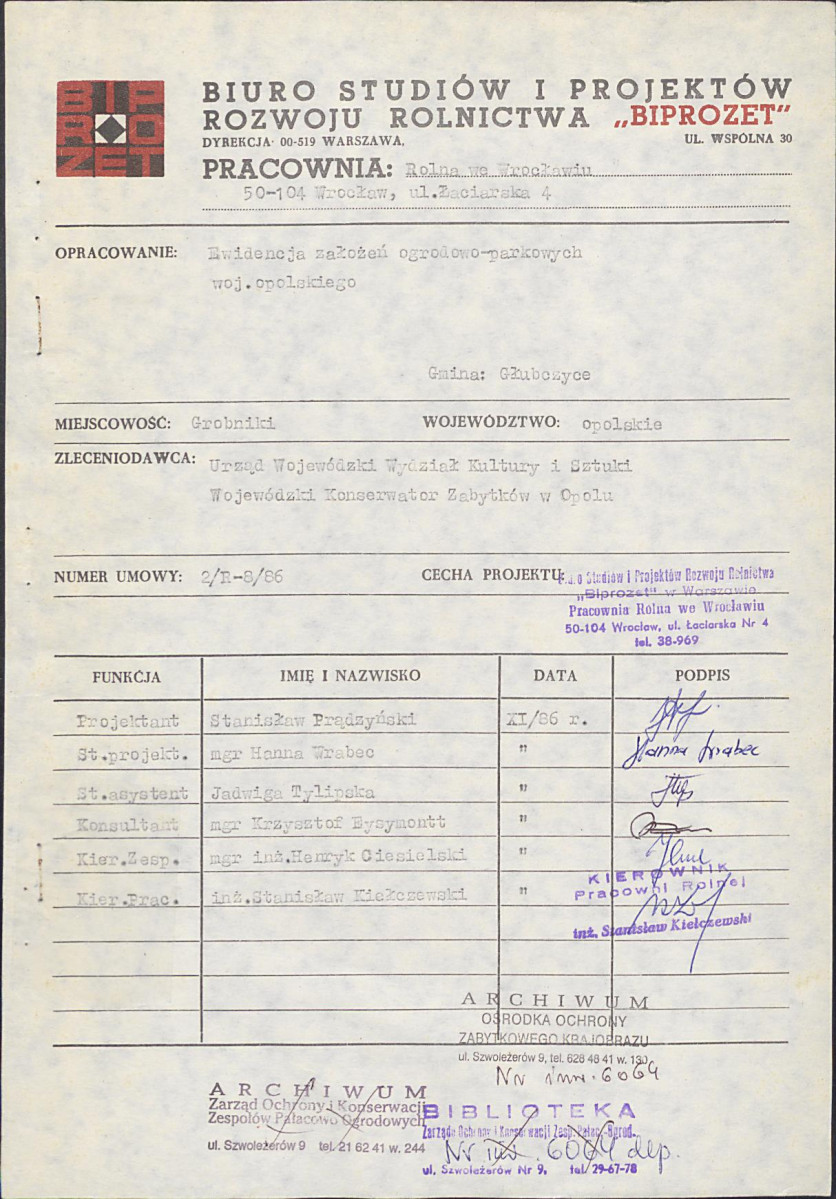 BIP
RO
ZET
BIURO STUDIÓW I PROJEKTÓW
ROZWOJU ROLNICTWA „BIPROZET"
DYREKCJA· 00-519 WARSZAWA, UL. WSPÓLNA 30
PRACOWNIA: Rolna we Wrocławiu
50-104 Wrocław, ul.Łaciarska 4
OPRACOWANIE: Ewidencja założeń ogrodowo-parkowych
woj.opolskiego
Gmina: Głubczyce
MIEJSCOWOŚĆ: Grobniki WOJEWÓDZTWO: opolskie
ZLECENIODAWCA: Urząd Wojewódzki Wydział Kultury i Sztuki
Wojewódzki Konserwator Zabytków w Opolu
NUMER UMOWY: 2/R-8/86 CECHA PROJEKTU:
Studiów i Projektów Rozwoju Rolnictwa
„Biprozet" w Warszawie
Pracownia Rolna we Wrocławiu
50-104 Wrocław, ul. Łaciarska Nr 4
tel. 38-969
FUNKCJA IMIĘ I NAZWISKO DATA PODPIS
Projektant Stanisław Prądzyński XI/86 r.
St.projekt. mgr Hanna Wrabec " Hanna Wrabec
St.asystent Jadwiga Tylipska "
Konsultant mgr Krzysztof Eysymontt "
Kier.Zesp. mgr inż.Henryk Ciesielski "
Kier.Prac. inż.Stanisław Kiełczewski "
KIEROWNIK
Pracowni Rolnej
inż. Stanisław Kiełczewski
ARCHIWUM
OŚRODKA OCHRONY
ZABYTKOWEGO KRAJOBRAZU
ul. Szwoleżerów 9, tel. 628 48 41 w. 130
Nr inw. 6064
ARCHIWUM
Zarząd Ochrony i Konserwacji
Zespołów Pałacowo Ogrodowych
ul. Szwoleżerów 9 tel. 21 62 41 w. 244
BIBLIOTEKA
Zarządu Ochrony i Konserwacji Zesp. Pałac.-Ogrod.
Nr inw. 6064 dep.
ul. Szwoleżerów Nr 9, tel. 29-67-78